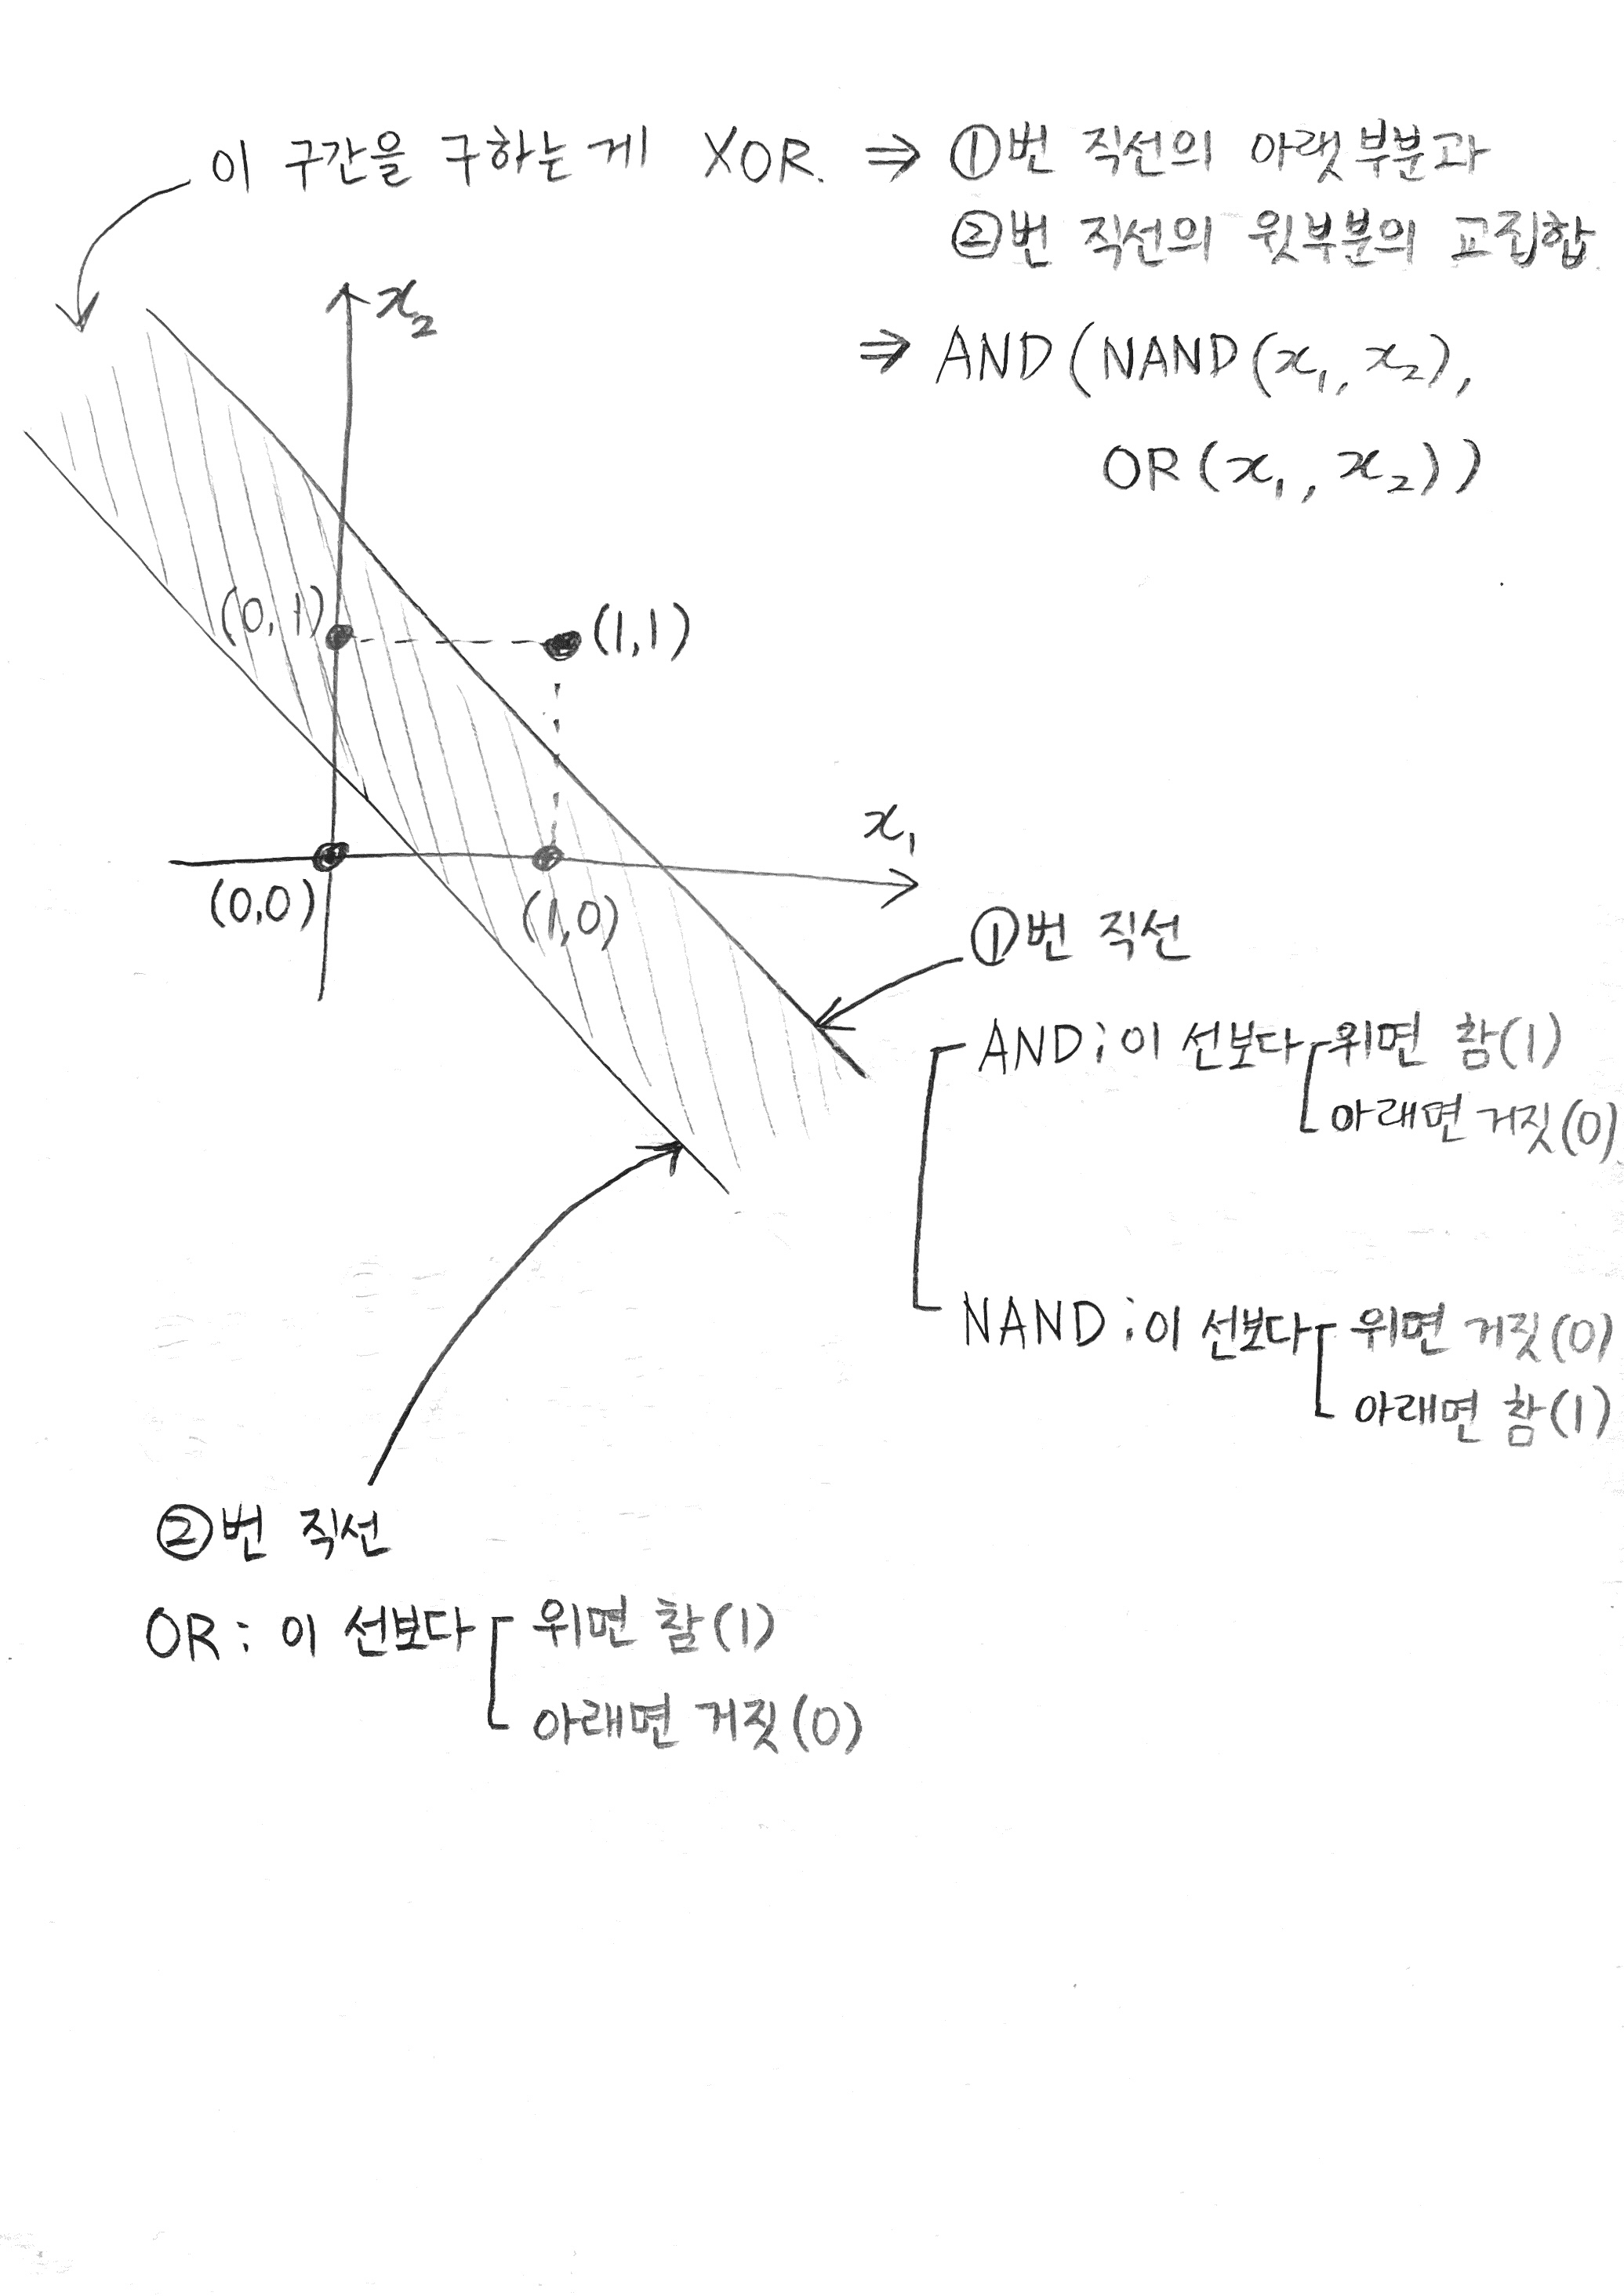 이 구간을 구하는 게 XOR. ⇒ ①번 직선의 아랫부분과
②번 직선의 윗부분의 교집합.
⇒ AND(NAND(x₁, x₂),
OR(x₁, x₂))
x₂
(0, 1)
(1,1)
x₁
(0,0)
(1,0)
①번 직선
AND; 이 선보다 위면 참(1)
아래면 거짓(0)
NAND; 이 선보다 위면 거짓(0)
아래면 참(1)
②번 직선
OR: 이 선보다 위면 참(1)
아래면 거짓(0)